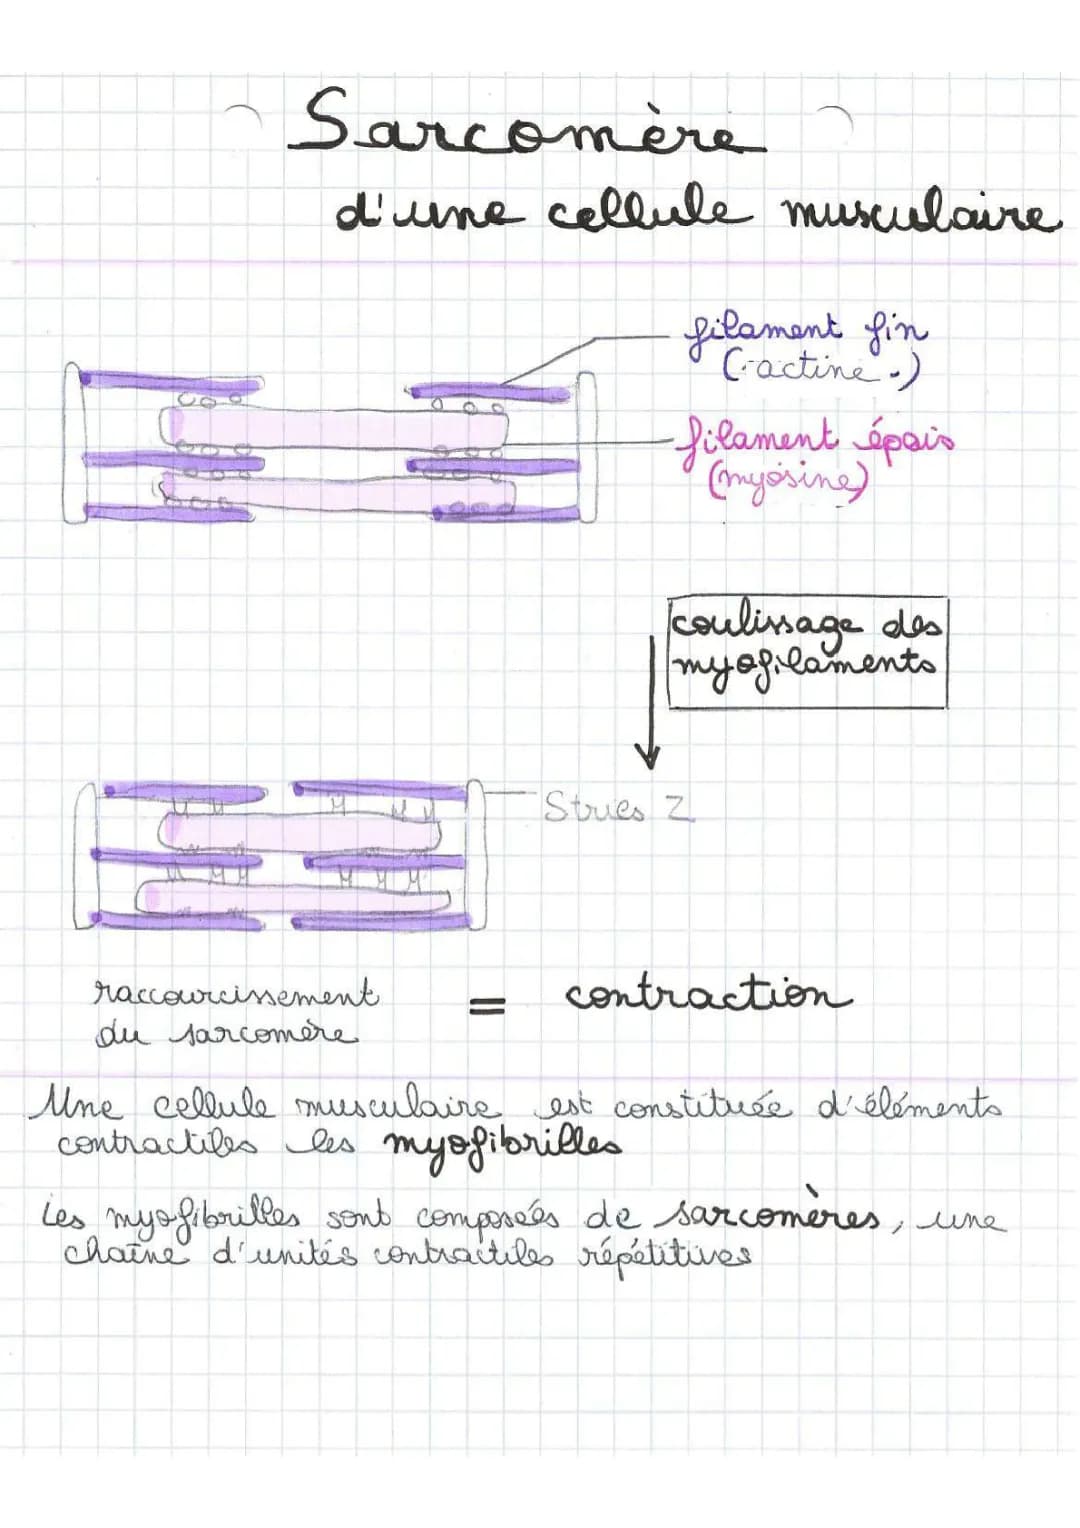 Sarcomère
d'une cellule musculaire
filament fin
(actine.)
filament épais
(myosine)
coulissage des
myofilaments
Stries Z
raccourcissement
du sarcomère
= contraction
Une cellule musculaire est constituée d'éléments
contractiles les myofibrilles
Les myofibrilles sont composées de sarcomères, une
chaîne d'unités contractiles répétitives